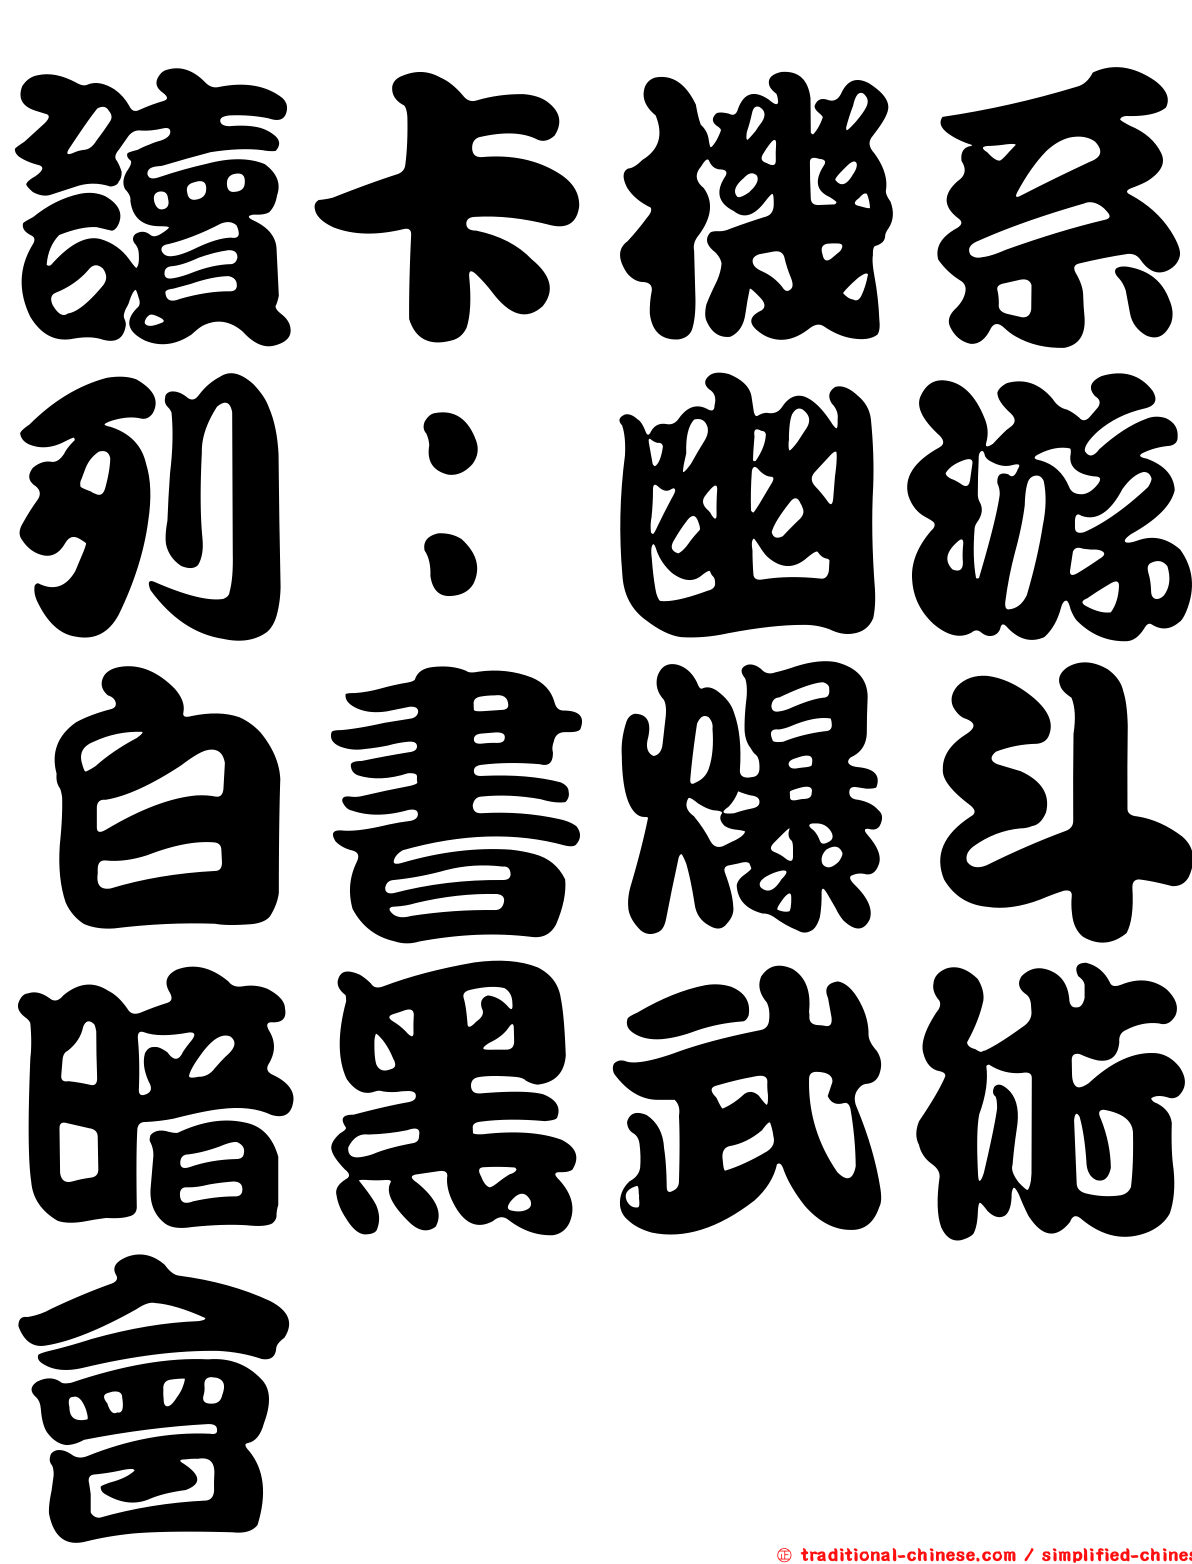 讀卡機系
列：幽游
白書爆斗
暗黑武術
會
㊣ traditional-chinese.com / simplified-chines